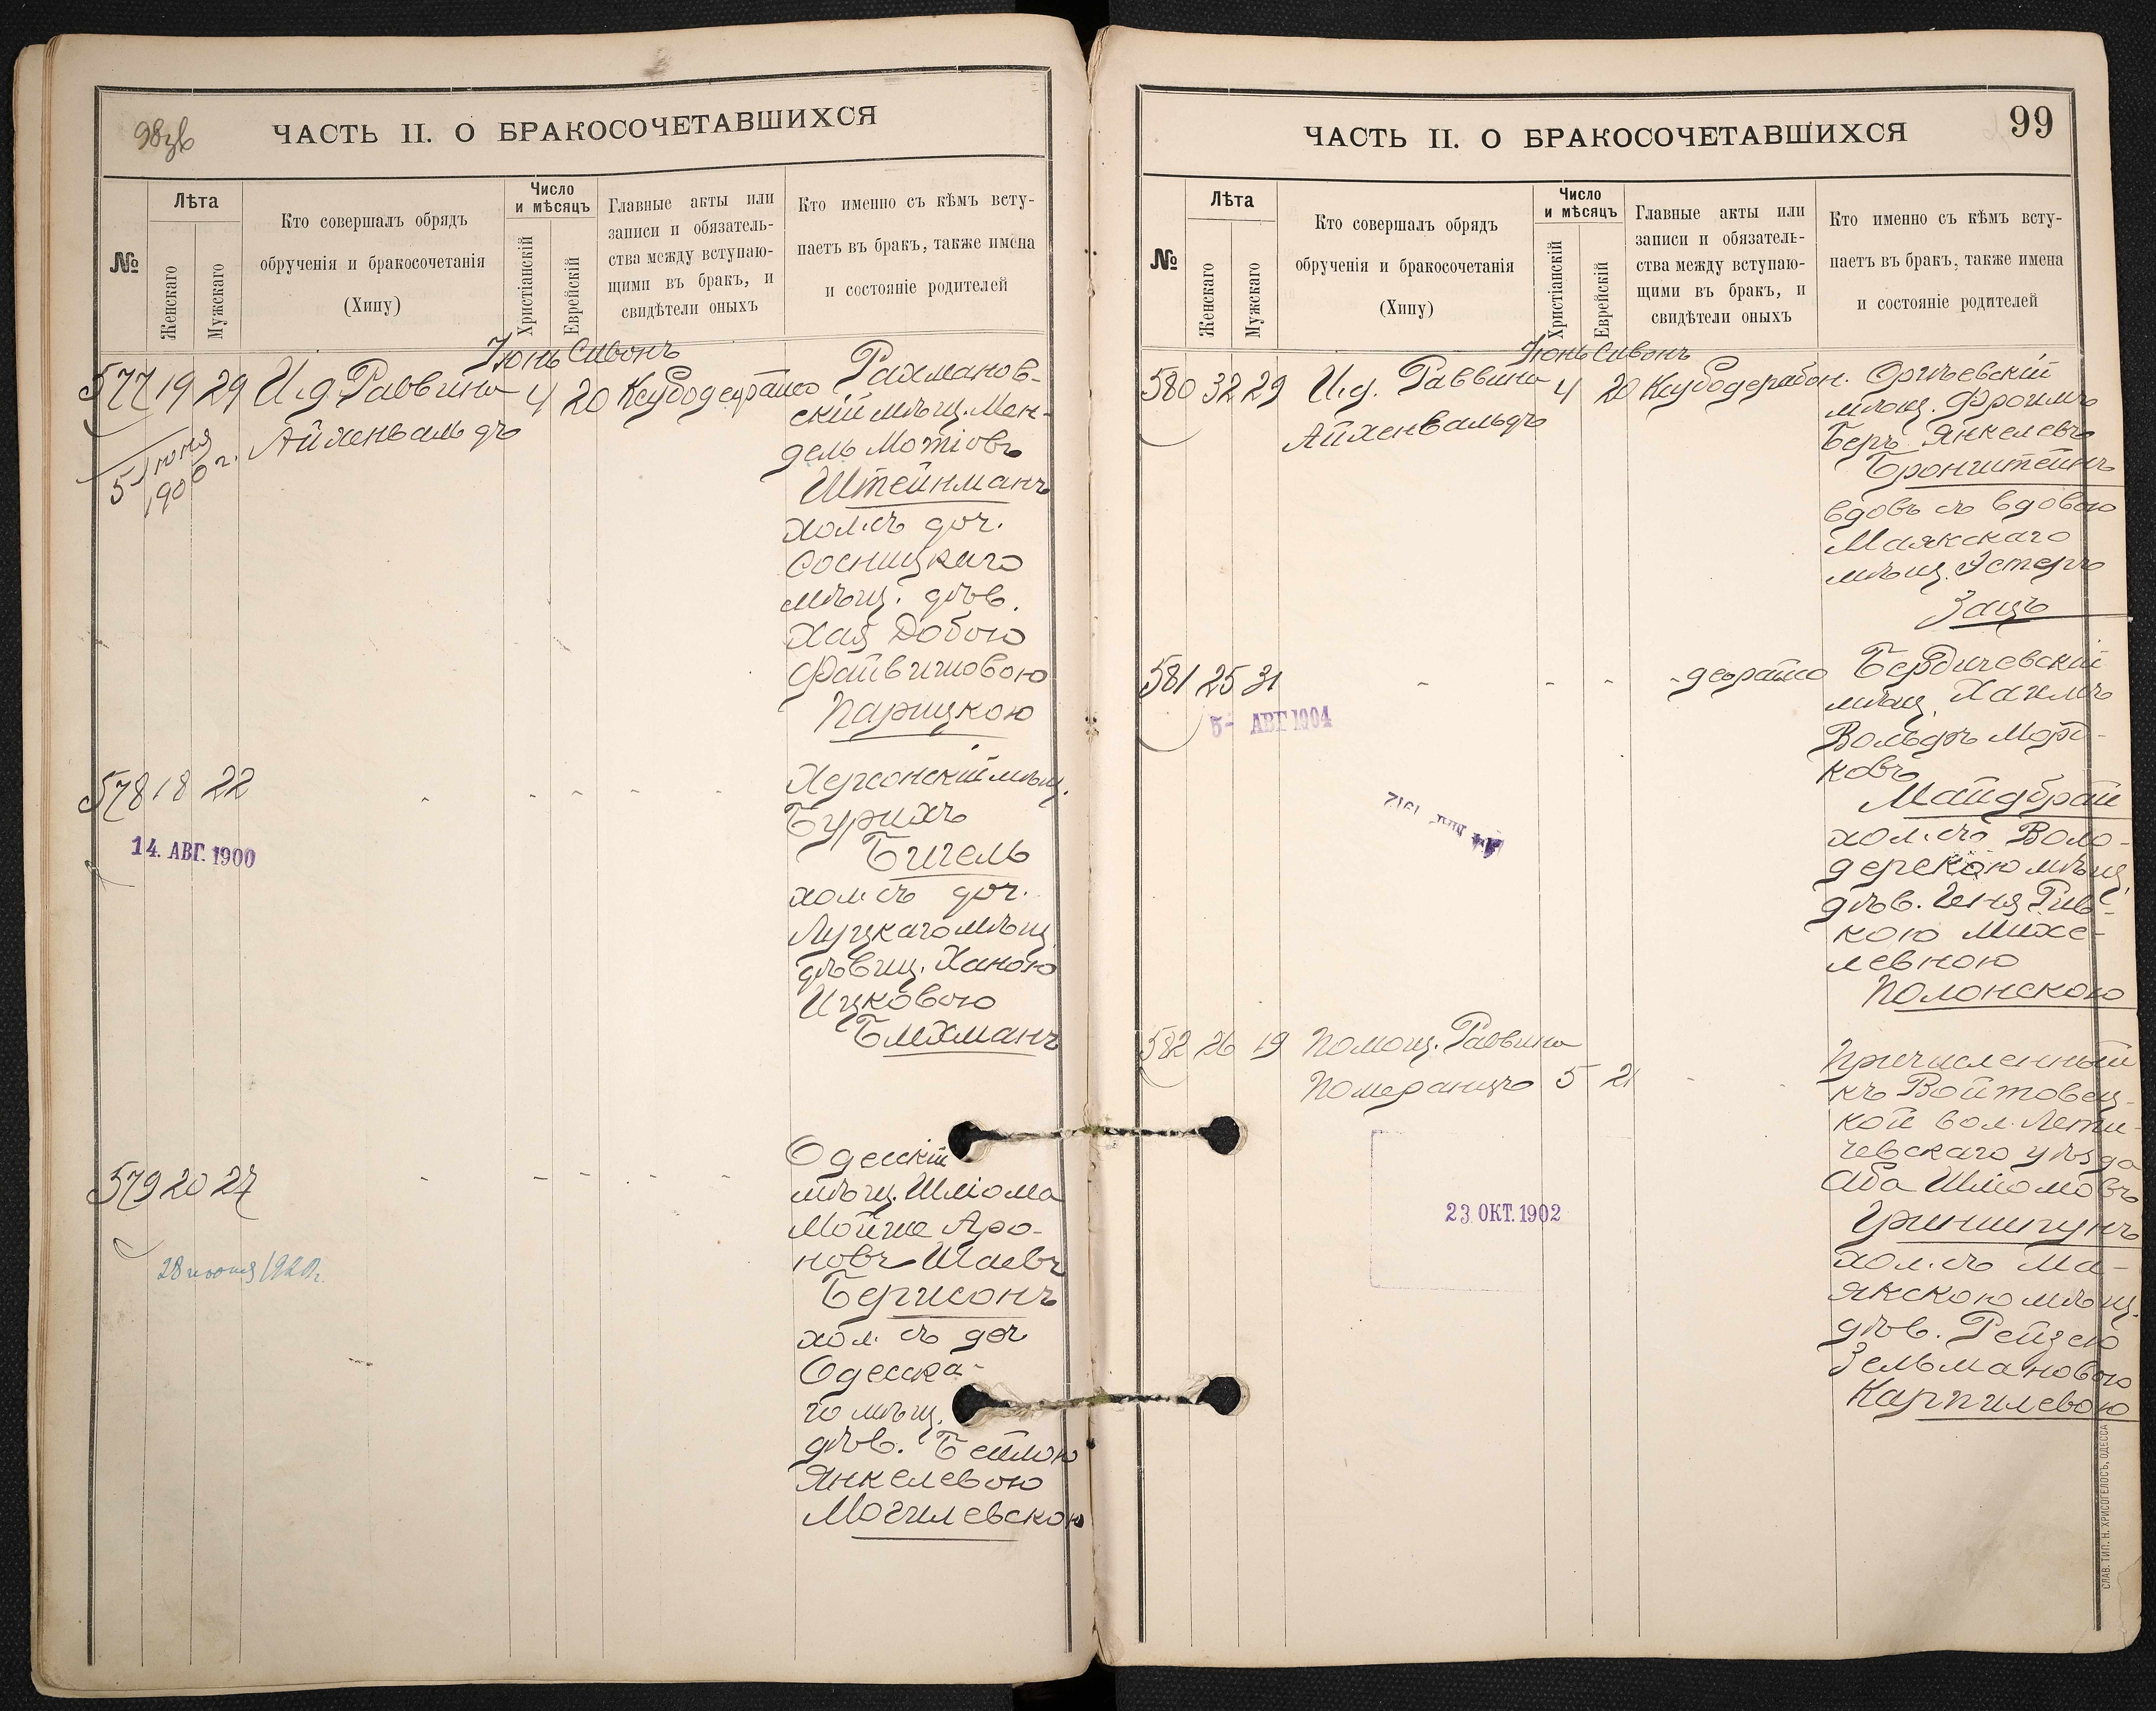 98об
ЧАСТЬ II. О БРАКОСОЧЕТАВШИХСЯ
№
Лѣта
Женскаго
Мужскаго
Кто совершалъ обрядъ
обрученія и бракосочетанія
(Хипу)
Число
и мѣсяцъ
Христіанскій
Еврейскій
Главные акты или
записи и обязатель-
ства между вступаю-
щими въ бракъ, и
свидѣтели оныхъ
Кто именно съ кѣмъ всту-
паетъ въ бракъ, также имена
и состояніе родителей
Іюнь Сивонъ
577 19 29 И.д. Раввина 4 20 Ксубодерайсо
Айхенвальдъ
5 Іюня
1900 г.
Рахманов-
скій мѣщ. Мен-
дель Мотіовъ
Штейнманъ
хол. съ доч.
Сосницкаго
мѣщ. дѣв.
Хая Добою
Файвишовою
Парицкою
578 18 22 - - - - -
14. АВГ. 1900
Херсонскій мѣщ.
Бурихъ
Бигель
хол. съ доч.
Луцкаго мѣщ.
дѣвиц. Ханою
Ицковою
Блихманъ
579 20 27 - - - - -
28 іюня 1920г.
Одесскій
мѣщ. Шліома
Мойше Аро-
новъ Шаевъ
Берисонъ
хол. съ доч
Одесска-
го мѣщ.
дѣв. Бейлою
Янкелевою
Могилевскою
99
ЧАСТЬ II. О БРАКОСОЧЕТАВШИХСЯ
№
Лѣта
Женскаго
Мужскаго
Кто совершалъ обрядъ
обрученія и бракосочетанія
(Хипу)
Число
и мѣсяцъ
Христіанскій
Еврейскій
Главные акты или
записи и обязатель-
ства между вступаю-
щими въ бракъ, и
свидѣтели оныхъ
Кто именно съ кѣмъ всту-
паетъ въ бракъ, также имена
и состояніе родителей
Іюнь Сивонъ
580 32 29 И.д. Раввина 4 20 Ксубодерабон.
Айхенвальдъ
Оргѣевскій
мѣщ. Фроимъ
Беръ Янкелевъ
Бронштейнъ
вдовъ съ вдовою
Маякскаго
мѣщ. Эстеръ
Зацъ
581 25 31 - - - - дерайсо
5- АВГ 1904
1912
Бердичевскій
мѣщ. Хаимъ
Вольфъ Морд-
ковъ
Майдбрай
хол. съ Воло-
дерскою мѣщ.
дѣв. Геня Рив-
кою Михе-
левною
Полонскою
582 26 19 Помощ. Раввина
Померанцъ 5 21 - -
23 ОКТ. 1902
Причисленный
къ Войтовец-
кой вол. Лети-
чевскаго уѣзда
Аба Шліомовъ
Гриншпунъ
хол. съ Ма-
якскою мѣщ.
дѣв. Рейзею
Зельмановою
Карпилевою
СЛАВ. ТИП. Н. ХРИСОГЕЛОСЪ, ОДЕССА